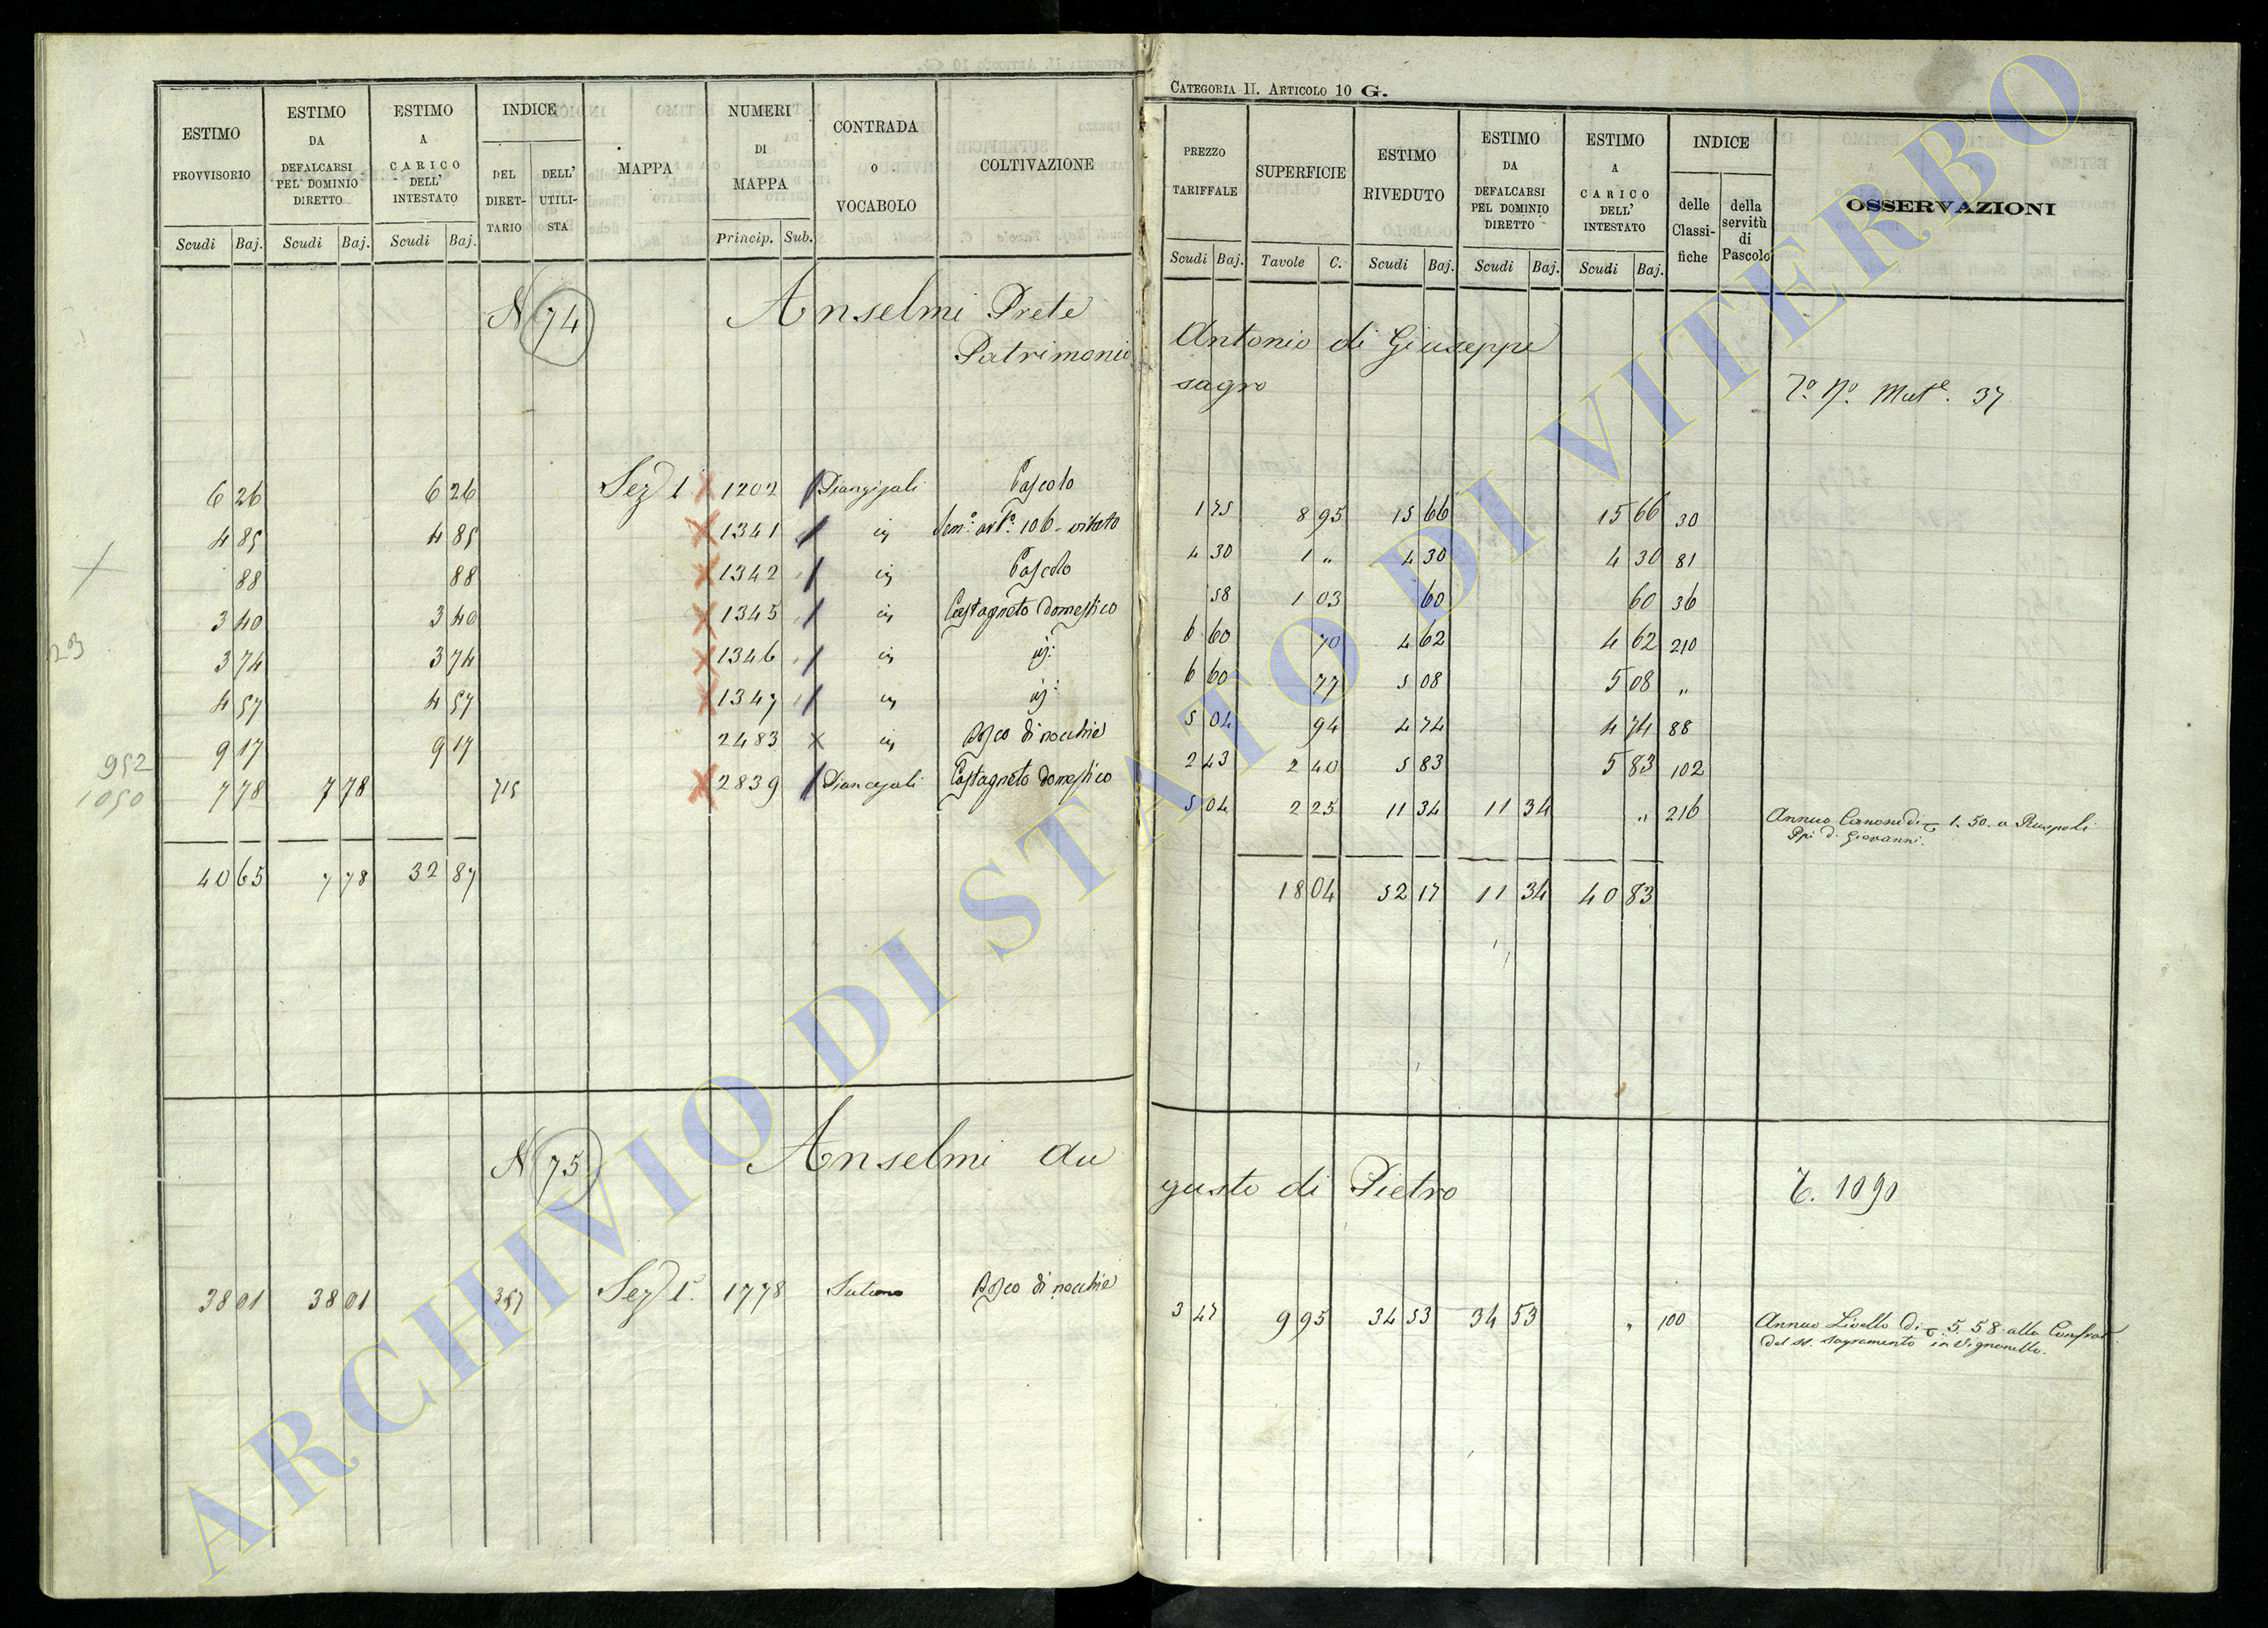 CATEGORIA II. ARTICOLO 10 G.
ESTIMO PROVVISORIO Scudi Baj.
ESTIMO DA DEFALCARSI PEL DOMINIO DIRETTO Scudi Baj.
ESTIMO A CARICO DELL' INTESTATO Scudi Baj.
INDICE DEL DIRETTARIO DELL' UTILISTA
MAPPA
NUMERI DI MAPPA Princip. Sub.
CONTRADA O VOCABOLO
COLTIVAZIONE
PREZZO TARIFFALE Scudi Baj.
SUPERFICIE Tavole C.
ESTIMO RIVEDUTO Scudi Baj.
ESTIMO DA DEFALCARSI PEL DOMINIO DIRETTO Scudi Baj.
ESTIMO A CARICO DELL' INTESTATO Scudi Baj.
INDICE delle Classifiche della servitù di Pascolo
OSSERVAZIONI
N 74 Anselmi Prete Antonio di Giuseppe
Patrimonio sagro
Mut. 37
6 26 6 26 Sez 1 1202 Pascolo 1 75 8 95 15 66 15 66 30
4 85 4 85 1341 Sem. art. 106. vitato 4 30 1 „ 4 30 4 30 81
88 88 1342 Pascolo 58 1 03 60 60 36
3 40 3 40 1345 Castagneto domestico 6 60 70 4 62 4 62 210
3 74 3 74 1346 6 60 77 5 08 5 08 „
4 57 4 57 1347 5 04 94 4 74 4 74 88
9 17 9 17 2483 Bosco di nocchie 2 43 2 40 5 83 5 83 102
7 78 7 78 715 2839 Castagneto domestico 5 04 2 25 11 34 11 34 „ 216 Annuo Canone di 1. 50. a Ruspoli
Ppi di Giovanni.
952
1050
40 65 7 78 32 87 18 04 52 17 11 34 40 83
N 75 Anselmi Augusto di Pietro
T. 1090
38 01 38 01 357 Sez 1. 1778 Bosco di nocchie 3 47 9 95 34 53 34 53 „ 100 Annuo Livello di 5. 58. alla Confrat.
del SS. Sagramento in Vignanello.
ARCHIVIO DI STATO DI VITERBO